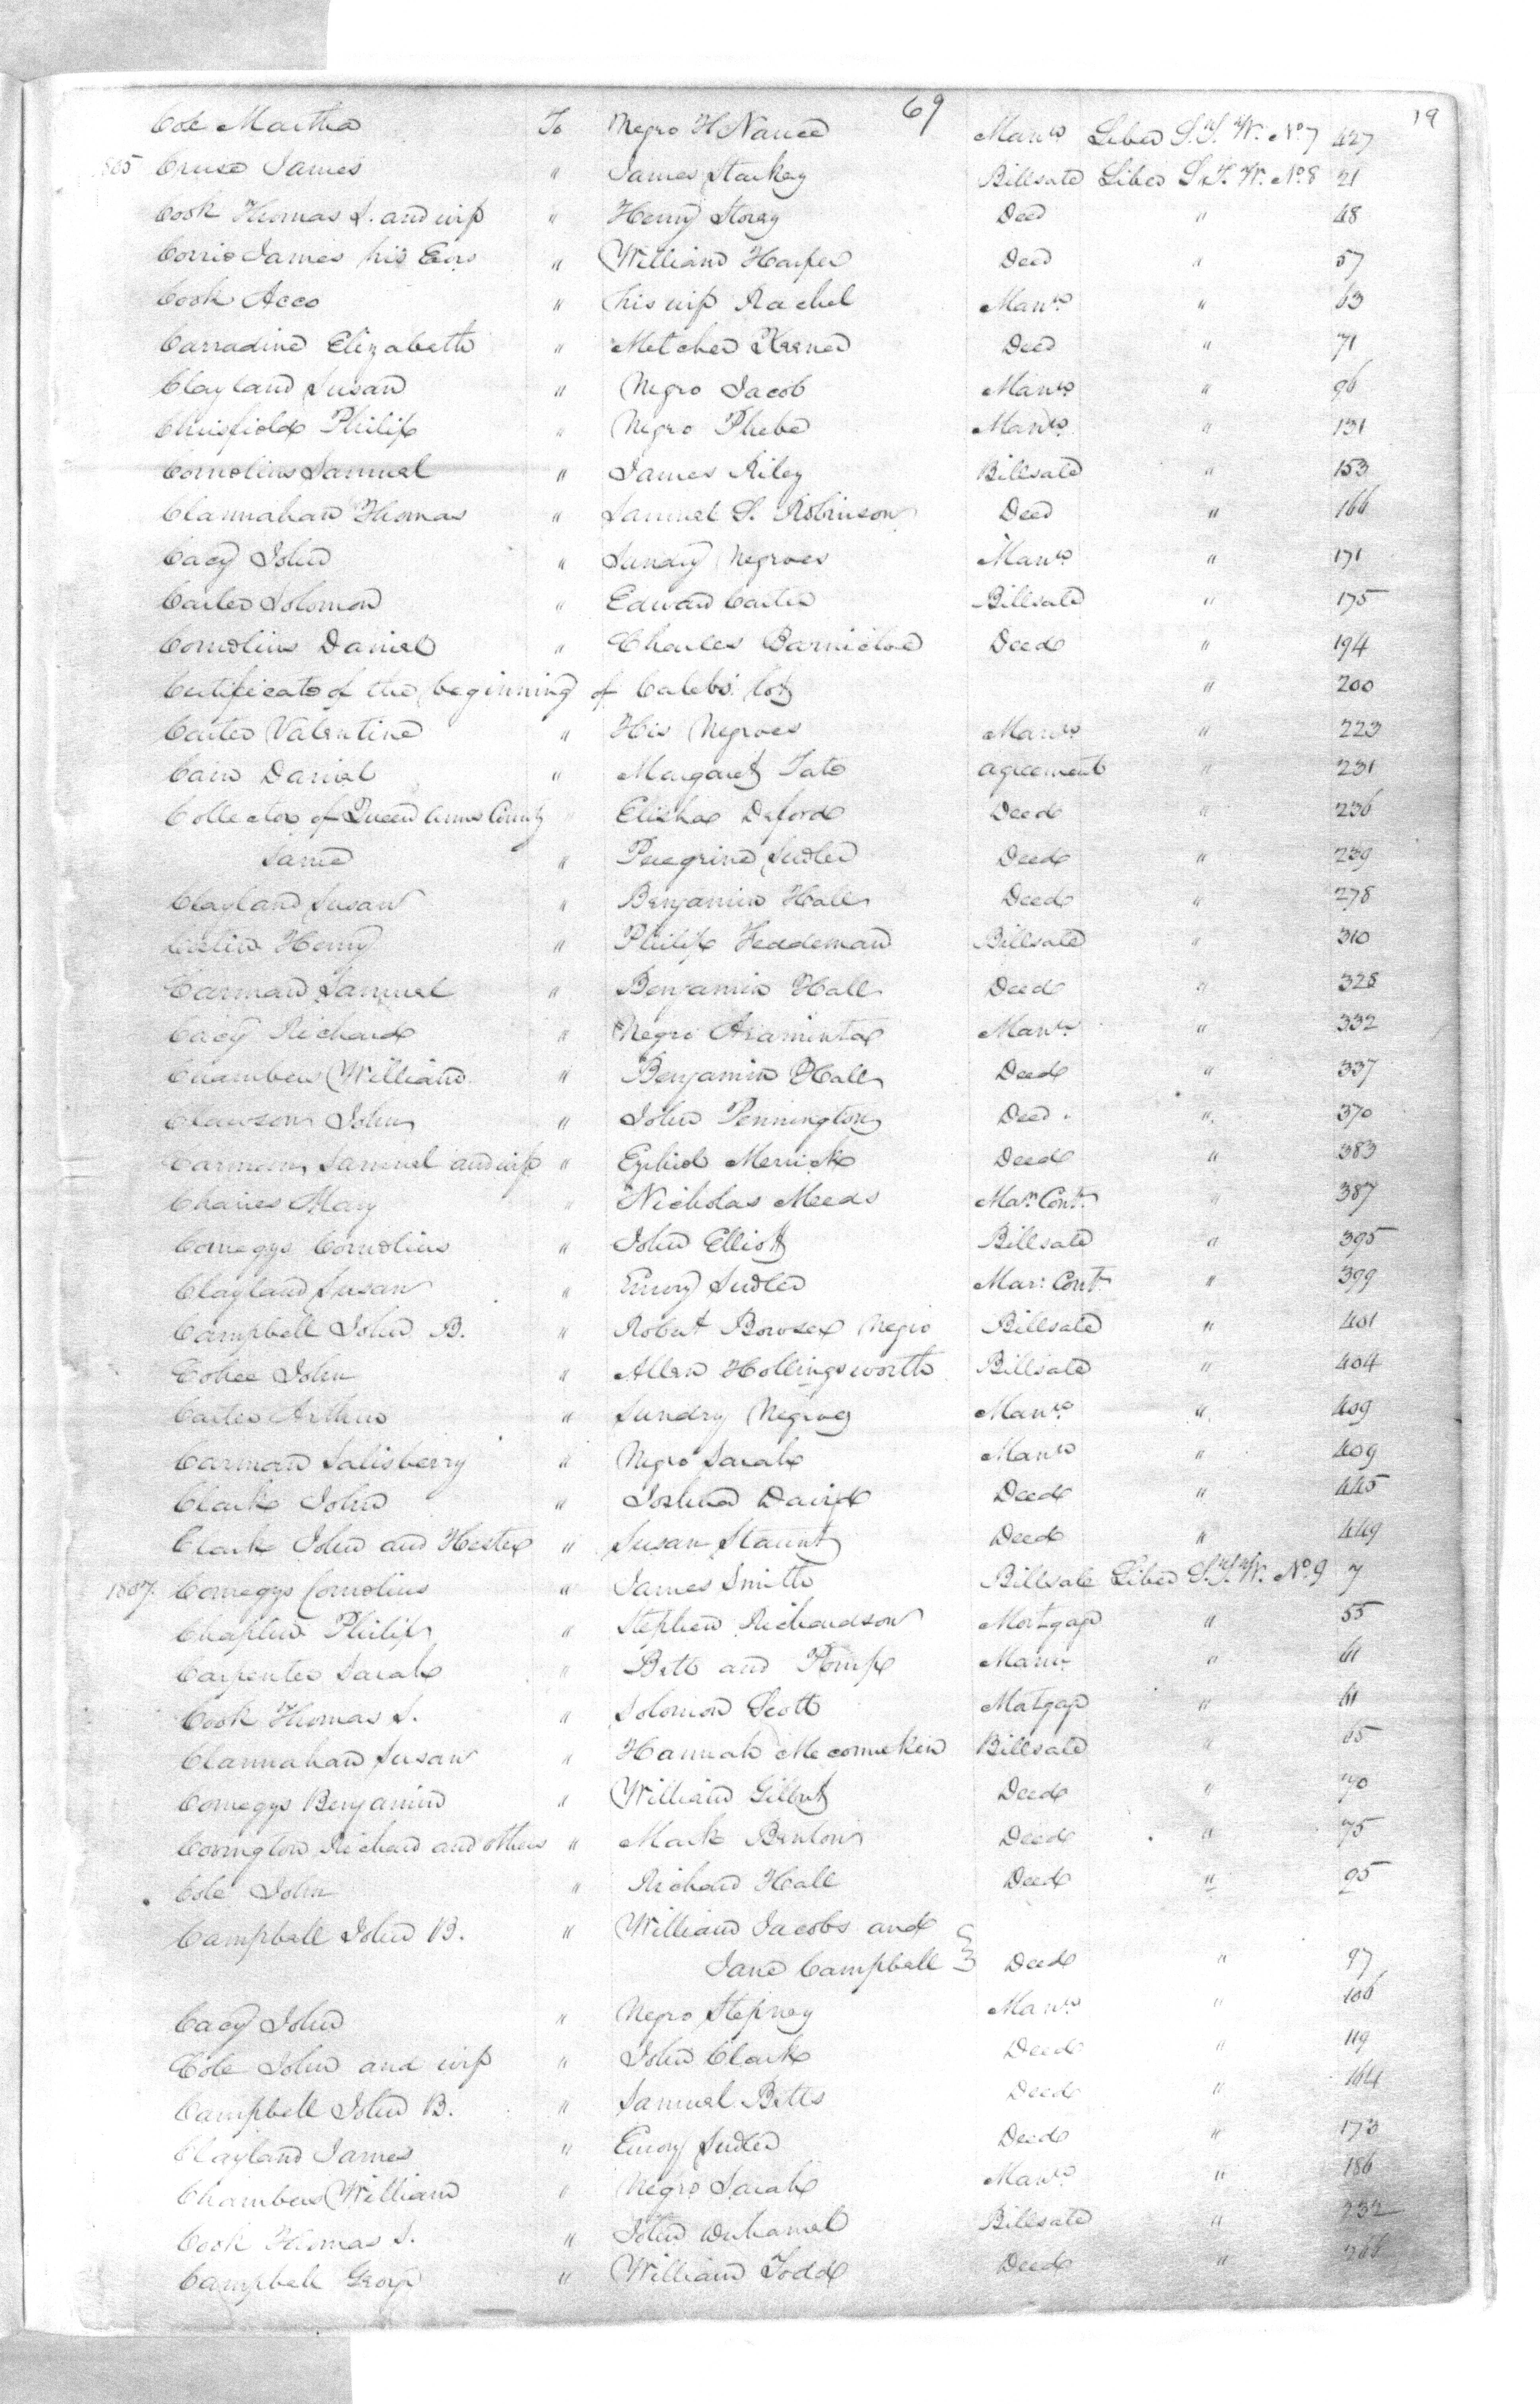 69
19
Cole Martha To Negro H Nance Manⁿ Liber S.T.W. Nº 7 427
Cruse James " James Starkey Billsale Liber S.T.W. Nº 8 21
Cook Thomas S. and wife " Henry Storey Deed " 48
Corrie James his Exrs " William Harper Deed " 57
Cook Acco " his wife Rachel Manⁿ " 63
Carradine Elizabeth " Deed " 71
Clayland Susan " Negro Jacob Manⁿ " 96
Chrisfield Philip " Negro Phebe Manⁿ " 131
Cornelius Samuel " James Riley Billsale " 153
Clannahan Thomas " Samuel S. Robinson Deed " 166
Cacy John " Sundry Negroes Manⁿ " 171
Carter Solomon " Edward Carter Billsale " 175
Cornelius Daniel " Charles Deed " 194
Certificate of the beginning of Calebs lot " 200
Carter Valentine " His Negroes Manⁿ " 223
Cain Daniel " Margaret Tate agreement " 231
Collector of Queen Anns County " Elisha Deford Deed " 236
Same " Peregrine Sudler Deed " 239
Clayland Susan " Benjamin Hall Deed " 278
Henry " Philip Feddeman Billsale " 310
Carman Samuel " Benjamin Hall Deed " 328
Cacy Richard " Negro Araminta Manⁿ " 332
Chambers William " Benjamin Hall Deed " 337
Clawson John " John Pennington Deed " 370
Carman Samuel and wife " Ezekiel Merrick Deed " 383
Chaires Mary " Nicholas Meeds Mar. Cont. " 387
Comegys Cornelius " John Elliott Billsale " 395
Clayland Susan " Emory Sudler Mar: Cont " 399
Campbell John B. " Robert Bowser Negro Billsale " 401
Cohee John " Allen Hollingsworth Billsale " 404
Carter Arthur " Sundry Negroes Manⁿ " 409
Carman Salisberry " Negro Sarah Manⁿ " 409
Clark John " Joshua David Deed " 445
Clark John and Hester " Susan Staunt Deed " 449
1807. Comegys Cornelius " James Smith Billsale Liber S.T.W. Nº 9 7
Chaplin Philip " Stephen Richardson Mortgage " 55
Carpenter Sarah " Bett and Pomp Manⁿ " 61
Cook Thomas S. " Solomon Scott Matgage " 61
Clannahan Susan " Hannah Mecomekin Billsale " 65
Comegys Benjamin " William Gilbert Deed " 70
Covington Richard and others " Mark Benton Deed " 75
Cole John " Richard Hall Deed " 95
Campbell John B. " William Jacobs and
Jane Campbell } Deed " 97
Cacy John " Negro Stepney Manⁿ " 106
Cole John and wife " John Clark Deed " 119
Campbell John B. " Samuel Betts Deed " 164
Clayland James " Emory Sudler Deed " 173
Chambers William " Negro Sarah Manⁿ " 186
Cook Thomas S. " John Duhamel Billsale " 232
Campbell George " William Todd Deed "